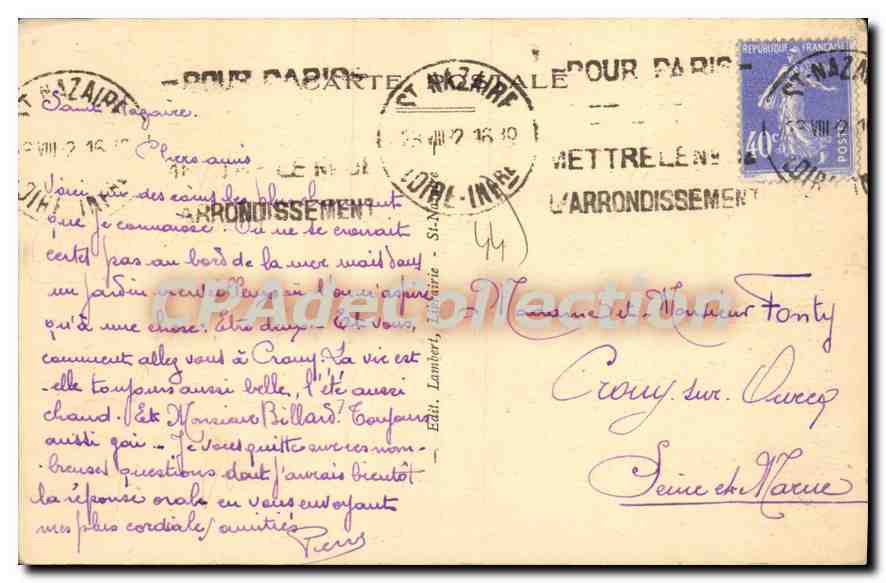 -POUR PARIS-
CARTE POSTALE
-POUR PARIS-
METTRE LE N°
L'ARRONDISSEMENT
ARRONDISSEMENT
ST NAZAIRE
28 VIII 32 16 30
LOIRE-INFRE
RÉPUBLIQUE FRANÇAISE
40c
POSTES
44
Saint Nazaire.
Chers amis
Voici un des coins les plus charmant
que je connaisse. On ne se croirait
certes pas au bord de la mer mais dans
un jardin merveilleux où l'on n'aspire
qu'à une chose: Être deux. Et vous,
comment allez vous à Crouy. La vie est
-elle toujours aussi belle, l'été aussi
chaud. Et Monsieur Billard? Toujours
aussi gai. Je vous quitte sur ces nom-
breuses questions dont j'aurais bientôt
la réponse orale en vous envoyant
mes plus cordiales amitiés
Edit. Lambert, Librairie - St-Nazaire
Madame et Monsieur Fonty
Crouy sur Ourcq
Seine et Marne
CPAdeCollection